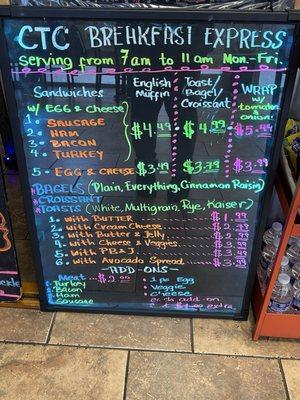 CTC BREHKFAST EXPRESS
Serving From 7am to 11am Mon-Fri.
Sandwiches English Muffin Toast/ Bagel/ Croissant WRAP w/ tomatoes onions
W/ EGG & Cheese
1. SAUSAGE
2. HAM $4.49 $4.99 $5.49
3. BACON
4. TURKEY
5. EGG & CHEESE $3.49 $3.79 $3.99
BAGELS (Plain, Everything, Cinnamon Raisin)
CROISSANT
TOASTS (White, Multigrain, Rye, Kaiser)
1. with BUTTER $1.99
2. with Cream Cheese $2.99
3. with Butter & Jelly $2.99
4. with Cheese & Veggies $3.99
5. with PB & J $3.99
6. with Avocado Spread $3.99
-ADD-ONS-
Meat $2.99
Turkey
Bacon
Ham
Sausage
1 pc Egg
Veggie
Cheese
each add-on
$1.00 extra